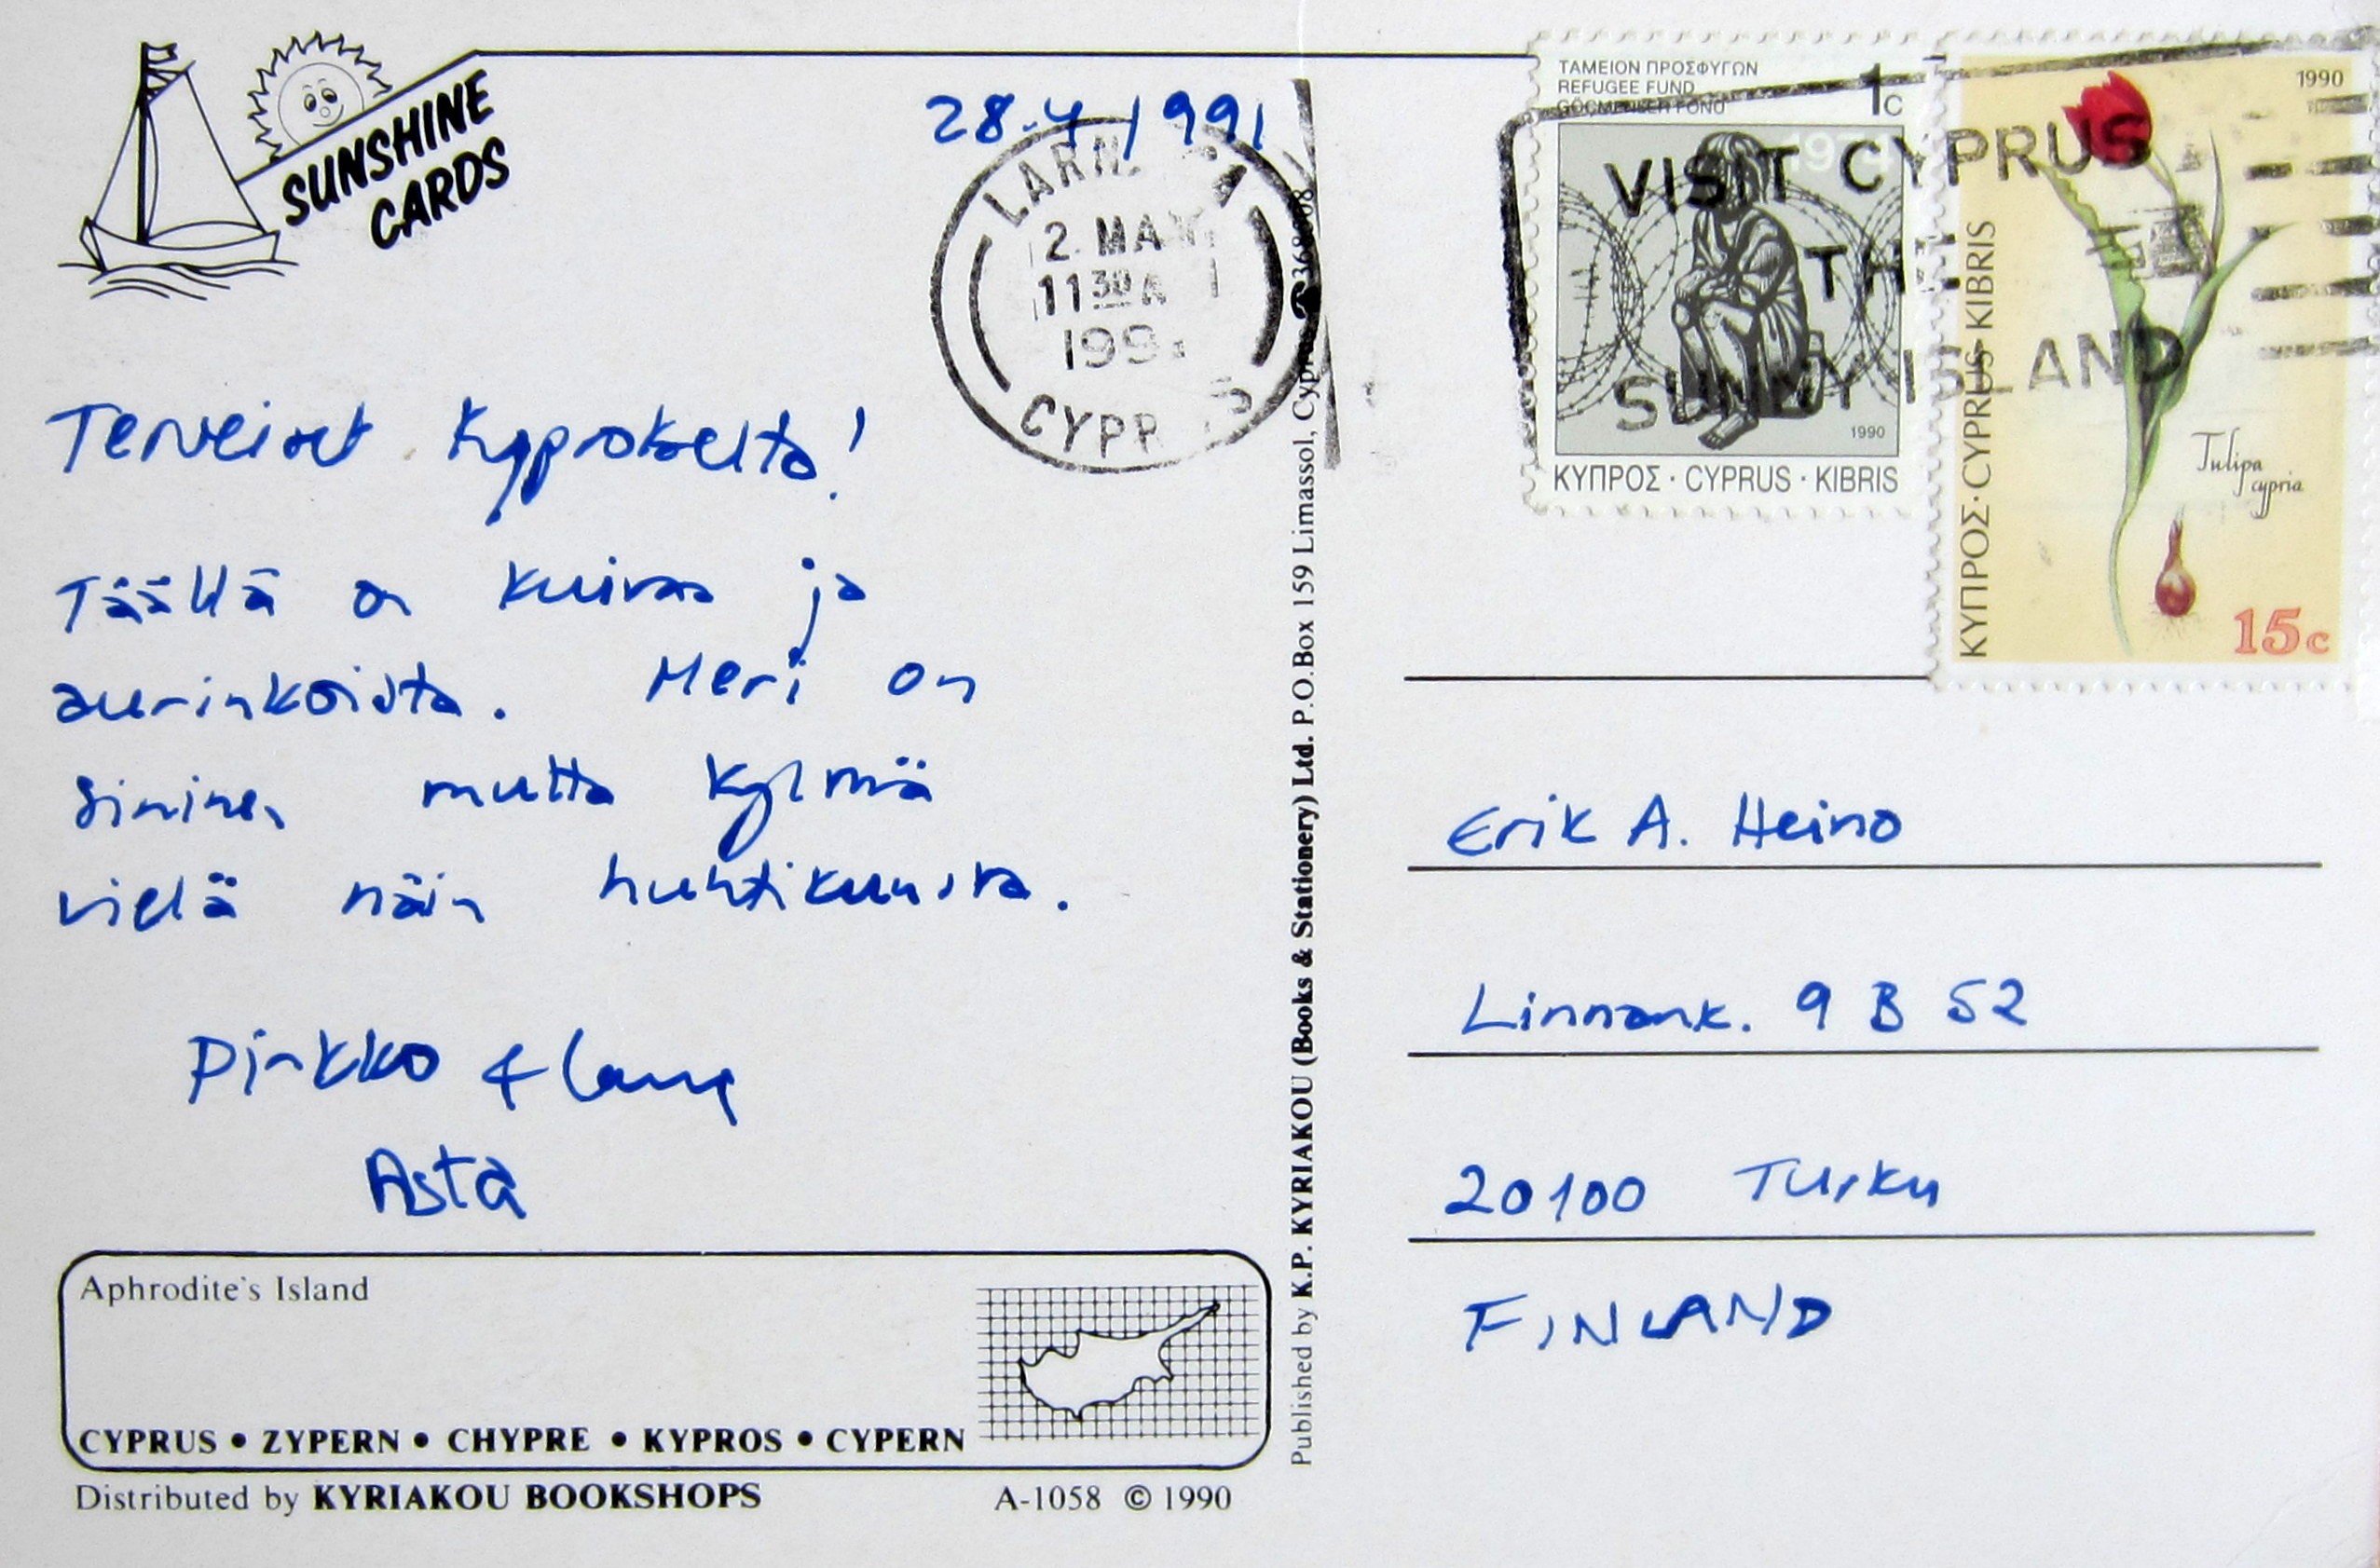 SUNSHINE
CARDS
28.4 1991
LARNACA
2. MAY
11 30 A
199
CYPRUS
Terveiset Kyprokselta!
Täällä on kuivaa ja
aurinkoista. Meri on
sininen mutta kylmä
vielä näin huhtikuussa.
Pirkko &
Asta
Aphrodite's Island
CYPRUS • ZYPERN • CHYPRE • KYPROS • CYPERN
Distributed by KYRIAKOU BOOKSHOPS
A-1058 © 1990
Published by K.P. KYRIAKOU (Books & Stationery) Ltd. P.O.Box 159 Limassol, Cyprus
ΤΑΜΕΙΟΝ ΠΡΟΣΦΥΓΩΝ
REFUGEE FUND
GÖÇMENLER FONU
1c
1974
1990
ΚΥΠΡΟΣ · CYPRUS · KIBRIS
VISIT CYPRUS
THE
SUNNY ISLAND
1990
ΚΥΠΡΟΣ·CYPRUS·KIBRIS
Tulipa
cypria
15c
Erik A. Heino
Linnank. 9 B 52
20100 Turku
FINLAND